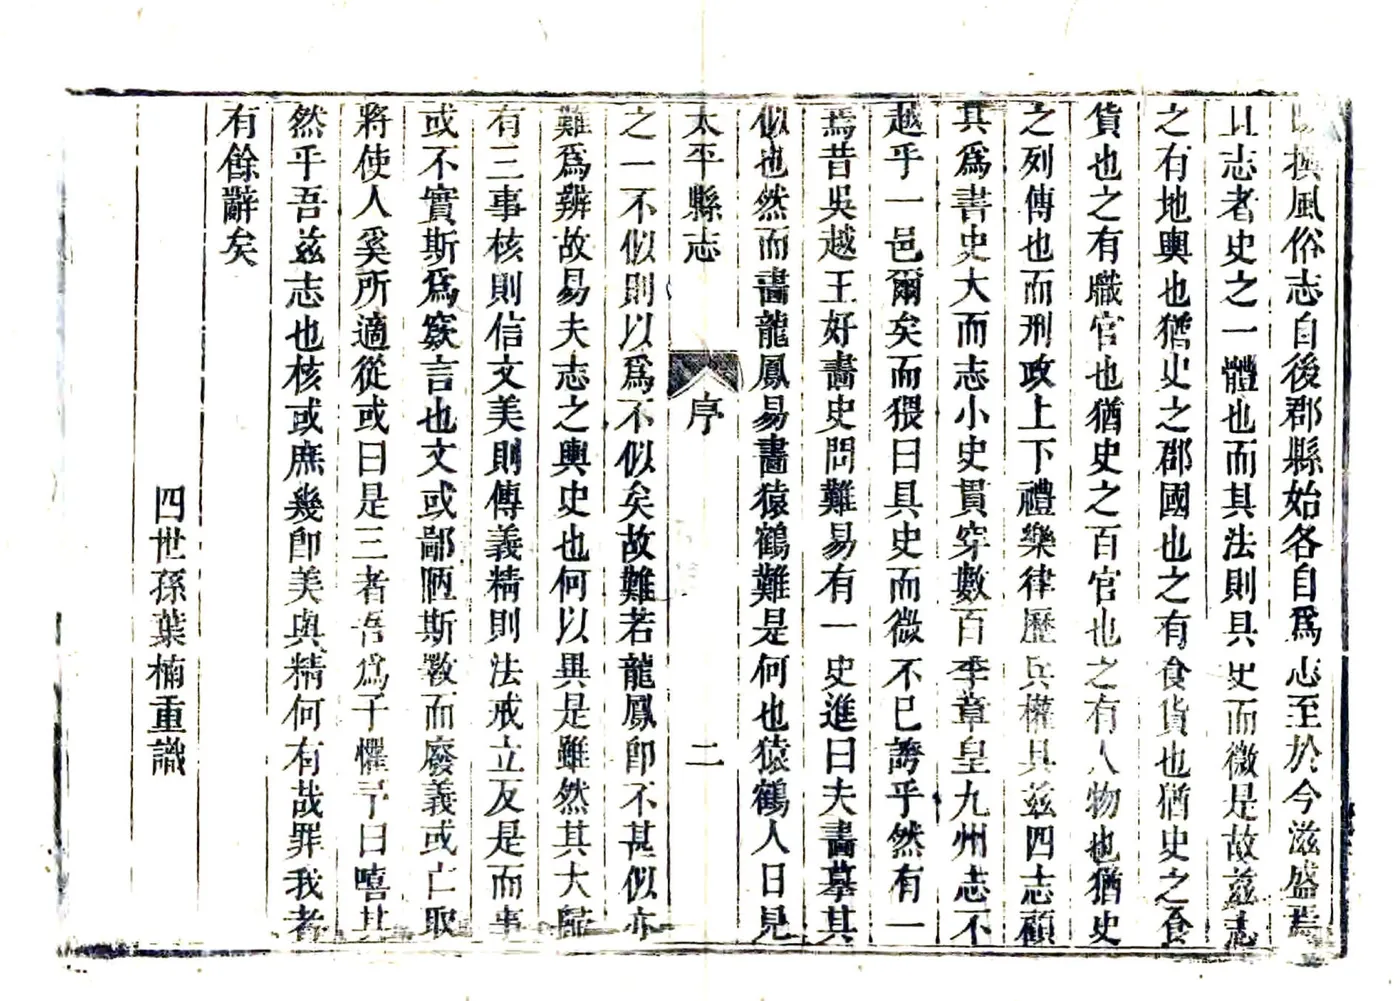 撰風俗志自後郡縣始各自爲志至於今滋盛焉
且志者史之一體也而其法則具史而微是故茲志
之有地輿也猶史之郡國也之有食貨也猶史之食
貨也之有職官也猶史之百官也之有人物也猶史
之列傳也而刑政上下禮樂律歷兵權具茲四志顧
其爲書史大而志小史貫穿數百季章皇九州志不
越乎一邑爾矣而猥曰具史而微不已誇乎然有一
焉昔吳越王好畵史問難易有一史進曰夫畵摹其
似也然而畵龍鳳易畵猿鶴難是何也猿鶴人日見
太平縣志
序
二
之一不似則以爲不似矣故難若龍鳳卽不甚似亦
難爲辨故易夫志之與史也何以異是雖然其大歸
有三事核則信文美則傳義精則法戒立反是而事
或不實斯爲窾言也文或鄙陋斯斁而廢義或亡取
將使人奚所適從或曰是三者吾爲子懼予曰嘻其
然乎吾茲志也核或庶幾卽美與精何有哉罪我者
有餘辭矣
四世孫葉楠重識